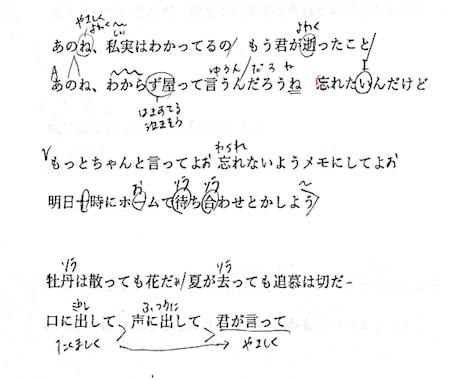 やさしく
よわく〜
よわく
あのね、私実はわかってるの/ もう君が逝ったこと/
ゆうん だろ ね
あのね、わからず屋って言うんだろうね 忘れたいんだけど
はきすてる
わられ
もっとちゃんと言ってよぉ 忘れないようメモにしてよぉ
お
明日十時にホームで待ち合わせとかしよう
牡丹は散っても花だぁ/ 夏が去っても追慕は切だー
少し
口に出して 声に出して 君が言って
たくましく やさしく